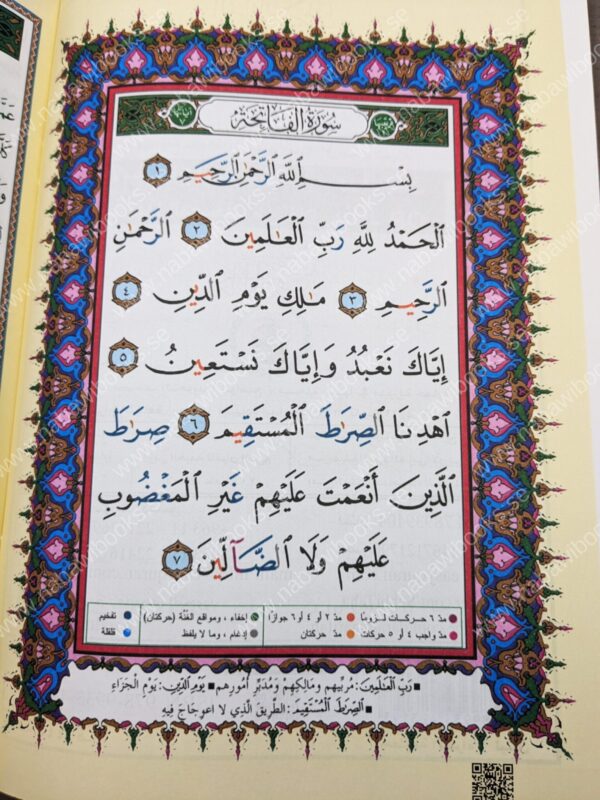 سُورَةُ الفَاتِحَةِ
بِسْمِ ٱللَّهِ ٱلرَّحْمَٰنِ ٱلرَّحِيمِ ١
ٱلْحَمْدُ لِلَّهِ رَبِّ ٱلْعَٰلَمِينَ ٢ ٱلرَّحْمَٰنِ
ٱلرَّحِيمِ ٣ مَٰلِكِ يَوْمِ ٱلدِّينِ ٤
إِيَّاكَ نَعْبُدُ وَإِيَّاكَ نَسْتَعِينُ ٥
ٱهْدِنَا ٱلصِّرَٰطَ ٱلْمُسْتَقِيمَ ٦ صِرَٰطَ
ٱلَّذِينَ أَنْعَمْتَ عَلَيْهِمْ غَيْرِ ٱلْمَغْضُوبِ
عَلَيْهِمْ وَلَا ٱلضَّآلِّينَ ٧
مدّ ٦ حركات لزومًا مدّ ٢ أو ٤ أو ٦ جوازًا إخفاء ، ومواقع الغُنَّة (حركتان) تفخيم
مدّ واجب ٤ أو ٥ حركات مدّ حركتان إدغام ، وما لا يلفظ قلقلة
رَبِّ ٱلْعَٰلَمِينَ: مُرَبِّيهِم وَمَالِكِهِمْ وَمُدَبِّرِ أُمُورِهِم يَوْمِ ٱلدِّينِ: يَوْمِ الْجَزَاءِ
ٱلصِّرَٰطَ ٱلْمُسْتَقِيمَ: الطَّرِيقَ الَّذِي لا اعْوِجَاجَ فِيهِ
www.nabawibooks.se